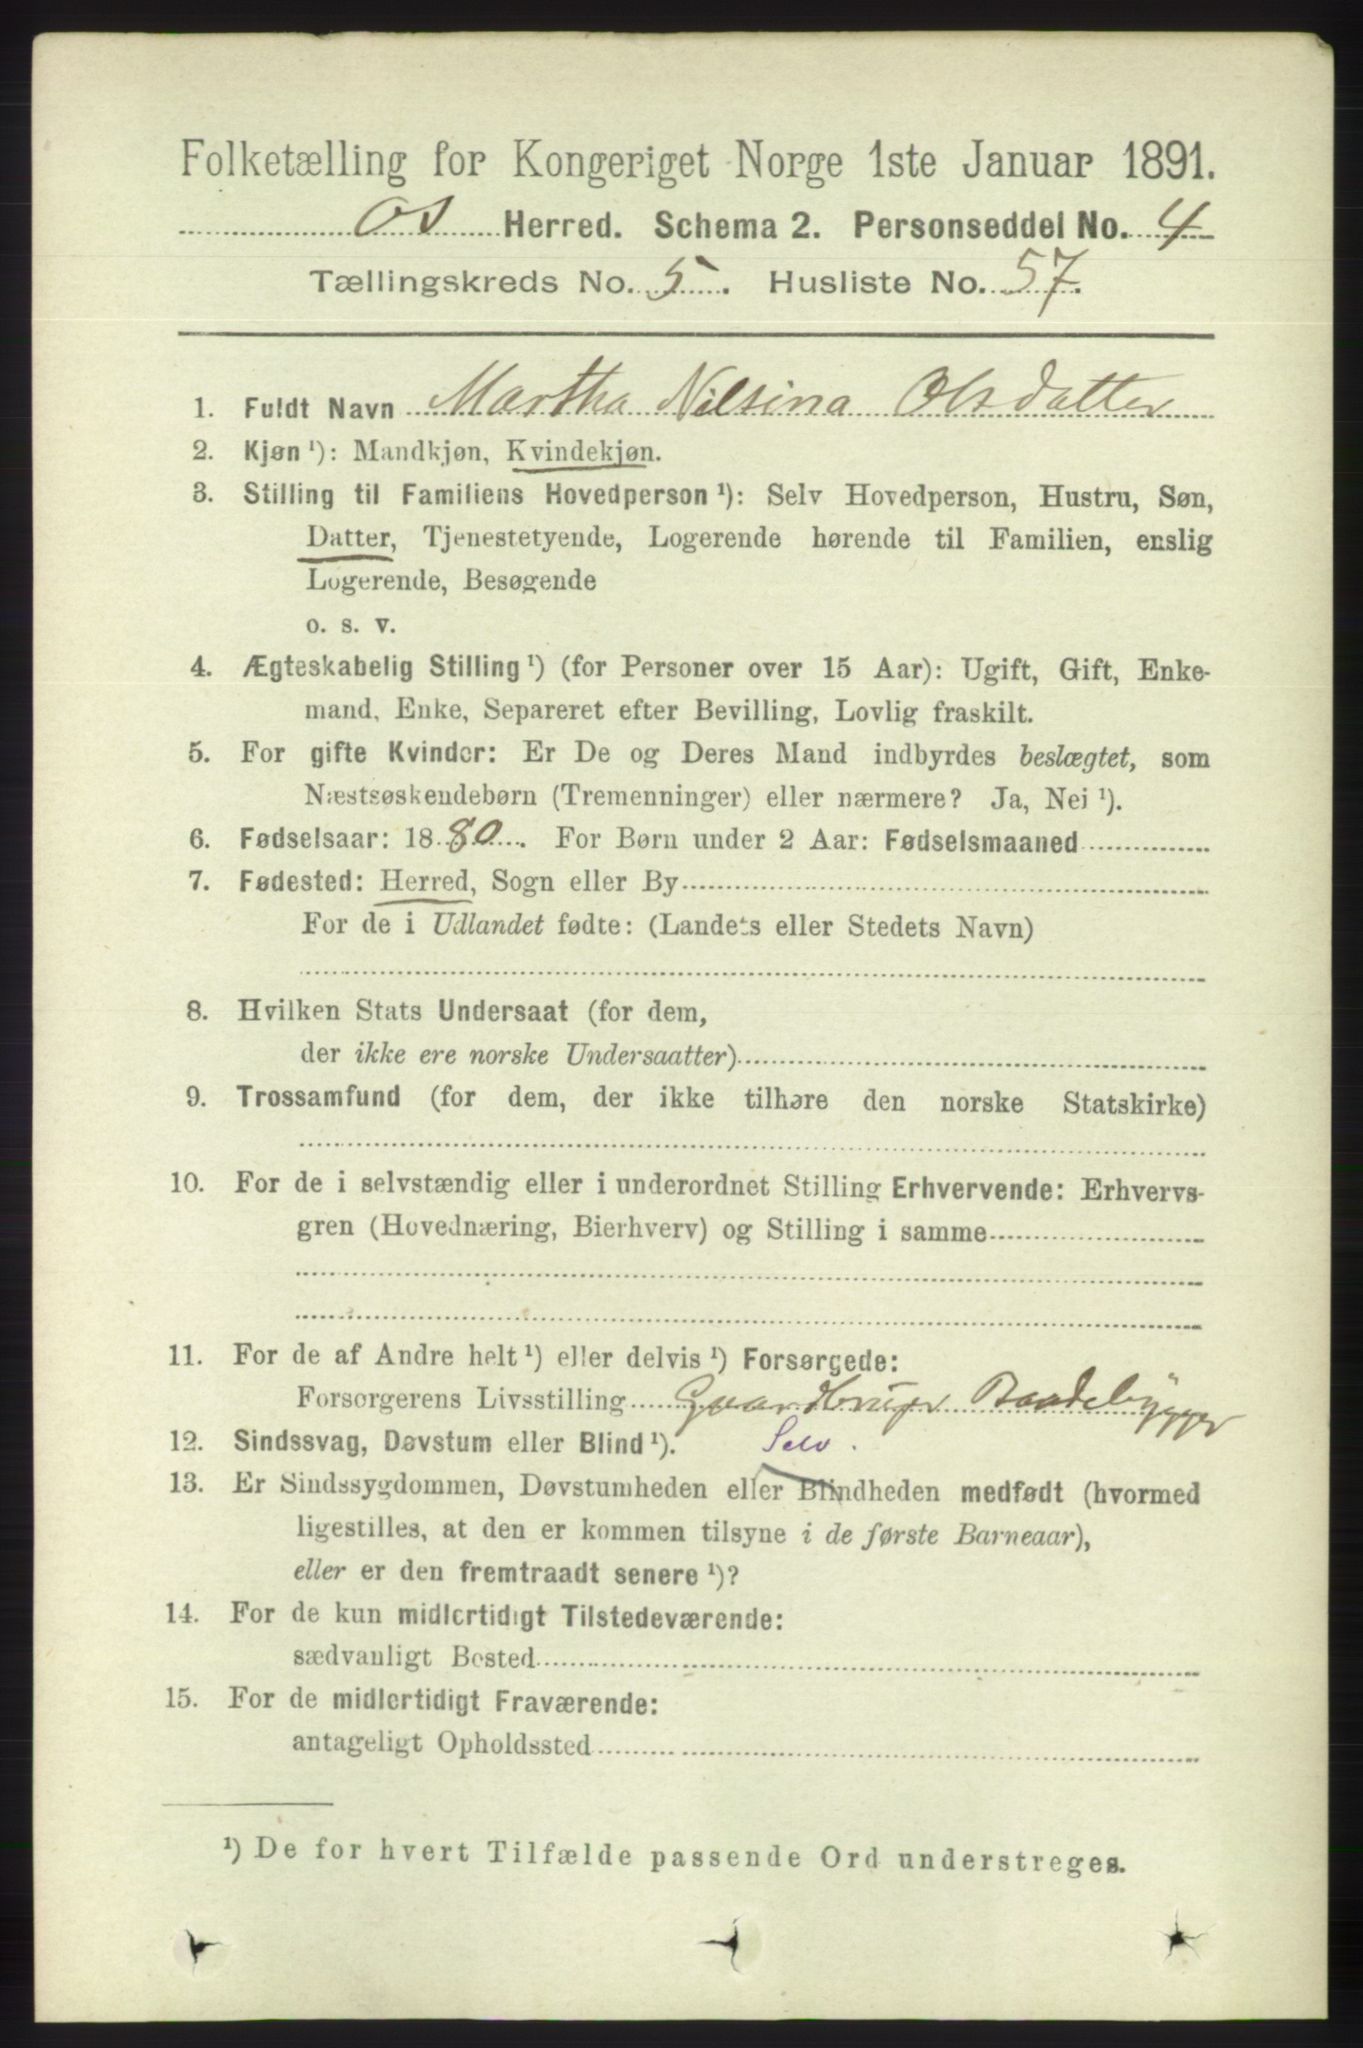 Folketælling for Kongeriget Norge 1ste Januar 1891.
Os Herred. Schema 2. Personseddel No. 4
Tællingskreds No. 5. Husliste No. 57.
1. Fuldt Navn Martha Nilsina Olsdatter
2. Kjøn ¹): Mandkjøn, Kvindekjøn.
3. Stilling til Familiens Hovedperson ¹): Selv Hovedperson, Hustru, Søn,
Datter, Tjenestetyende, Logerende hørende til Familien, enslig
Logerende, Besøgende
o. s. v.
4. Ægteskabelig Stilling ¹) (for Personer over 15 Aar): Ugift, Gift, Enke-
mand, Enke, Separeret efter Bevilling, Lovlig fraskilt.
5. For gifte Kvinder: Er De og Deres Mand indbyrdes beslægtet, som
Næstsøskendebørn (Tremenninger) eller nærmere? Ja, Nei ¹).
6. Fødselsaar: 1880. For Børn under 2 Aar: Fødselsmaaned
7. Fødested: Herred, Sogn eller By
For de i Udlandet fødte: (Landets eller Stedets Navn)
8. Hvilken Stats Undersaat (for dem,
der ikke ere norske Undersaatter)
9. Trossamfund (for dem, der ikke tilhøre den norske Statskirke)
10. For de i selvstændig eller i underordnet Stilling Erhvervende: Erhvervs-
gren (Hovednæring, Bierhverv) og Stilling i samme
11. For de af Andre helt ¹) eller delvis ¹) Forsørgede:
Forsørgerens Livsstilling Baadebygger
12. Sindssvag, Døvstum eller Blind ¹). Selv.
13. Er Sindssygdommen, Døvstumheden eller Blindheden medfødt (hvormed
ligestilles, at den er kommen tilsyne i de første Barneaar),
eller er den fremtraadt senere ¹)?
14. For de kun midlertidigt Tilstedeværende:
sædvanligt Bosted
15. For de midlertidigt Fraværende:
antageligt Opholdssted
¹) De for hvert Tilfælde passende Ord understreges.